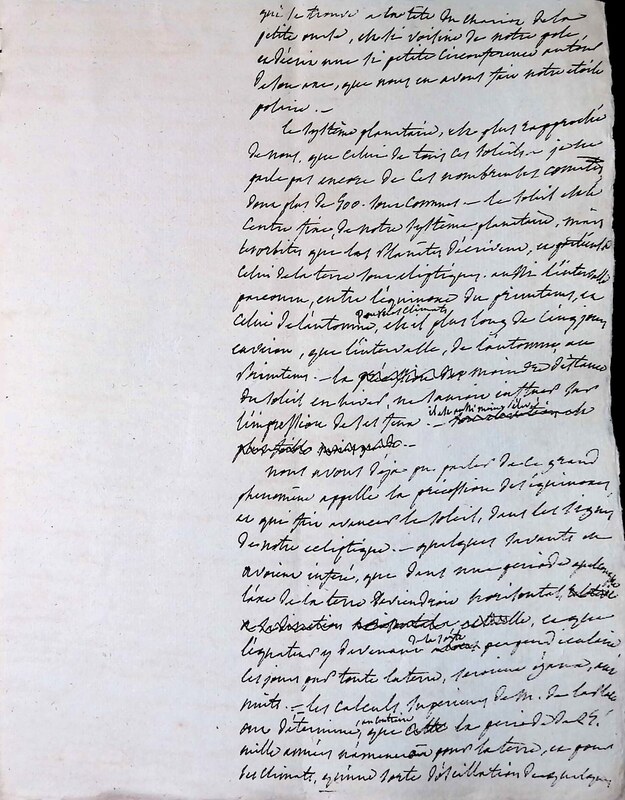 qui se trouve a la tete du chariot de la
petite ourse, est si voisine de notre pole,
et décrit une si petite circonference autour
de son axe, que nous en avons fait notre etoile
polaire. —
le système planetaire, est plus rapproché
de nous, que celui de tous ces soleils. — je ne
parle pas encore de ces nombreuses comètes
dont plus de 500. sont connues — le soleil est le
centre fixe, de notre système planetaire, mais
les orbites que les planètes décrivent, et
celui de la terre sont eliptiques. aussi l'intervalle
parcouru, entre l'équinoxe du printems, et
pour les climats
celui de l'automne, est il plus long de cinq jours
environ, que l'intervalle, de l'automne au
printems. — la moindre distance
du soleil en hiver, ne saurait influer sur
l'impression de ses feux. — il est aussi moins élevé
nous avons déja pu parler de ce grand
phenomène appellé la précession des équinoxes,
et qui fait avancer le soleil, dans les signes
de notre ecliptique. — quelques savants en
avoient inféré, que dans une periode
l'axe de la terre deviendroit horisontal,
et que
l'équateur y devenant de la sorte perpendiculaire
les jours pour toute la terre, seroient égaux, aux
nuits. — les calculs superieurs de M. de la Place
ont déterminé, au contraire que la periode de 25.
mille années n'amenoit pour la terre, et pour
ses climats, qu'une sorte d'oscillation de quelques